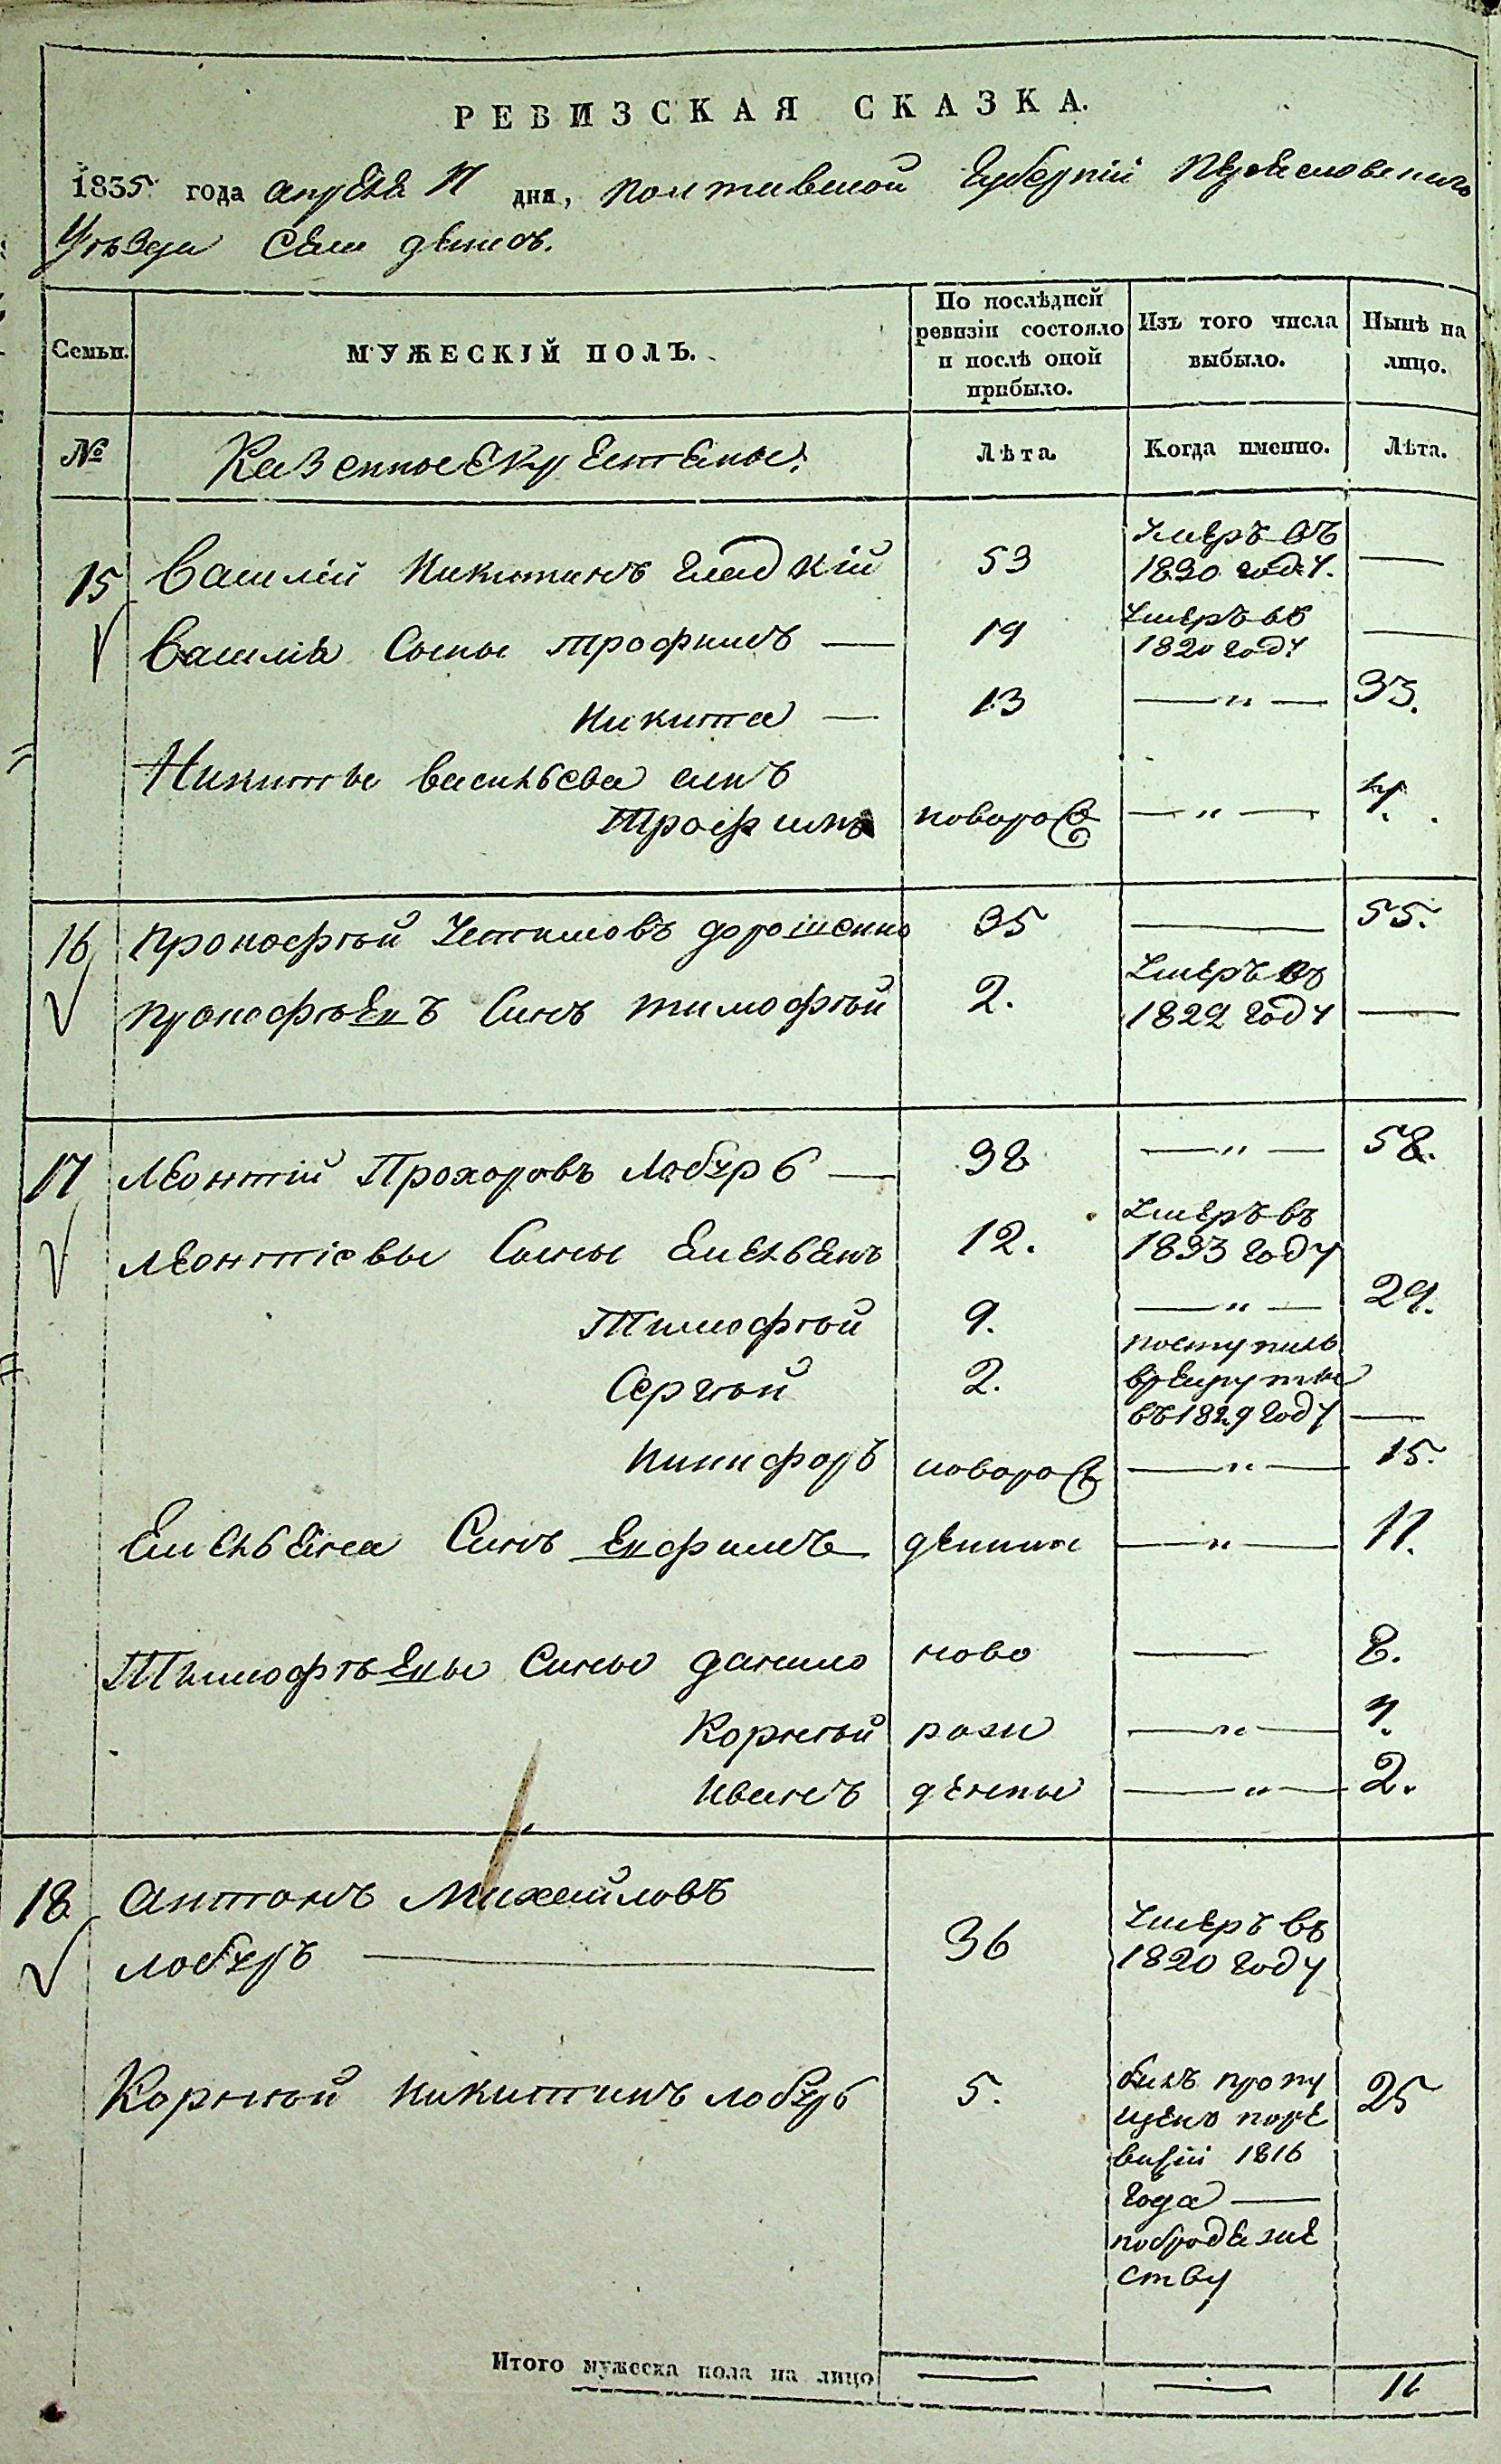 РЕВИЗСКАЯ СКАЗКА.
1835 года апреля 17 дня, Полтавской Губернии Переясловского
Уѣзда Села
Семьи. МУЖЕСКІЙ ПОЛЪ. По послѣдней ревизіи состояло и послѣ оной прибыло. Изъ того числа выбыло. Нынѣ на лицо.
№ Казенные Крестьяне. Лѣта. Когда именно. Лѣта.
15 Василій Никитинъ Гладкій 53 Умеръ въ 1830 году. —
Василія Сыны Трофимъ — 19 Умеръ въ 1820 году —
Никита — 13 — " — 33.
Никиты Васильева синъ
Трофимъ новорож — " — 4.
16 Прокофѣй Устимовъ Дорошенко 35 — 55.
Прокофѣевъ Синъ Тимофѣй 2. Умеръ въ 1822 году —
17 Леонтій Прохоровъ Лобурь — 38 — " — 58.
Леонтіевы Сыны Емельянъ 12. Умеръ въ 1833 году
Тимофѣй 9. — " — 29.
Сергѣй 2. поступилъ в рекруты въ 1829 году —
Никифоръ новорож — " — 15.
Емельяна Синъ Ефимъ денни — " — 11.
Тимофѣевы Сины Данило ново — 8.
Корнѣй рож — " — 4.
Иванъ денны — " — 2.
18 Антонъ Михайловъ
Лобуръ — 36 Умеръ въ 1820 году
Корнѣй Никитинъ Лобурь 5. билъ пропу
щенъ поре
визіи 1816
года —
побродяже
ству 25
Итого мужеска пола на лицо — — 11